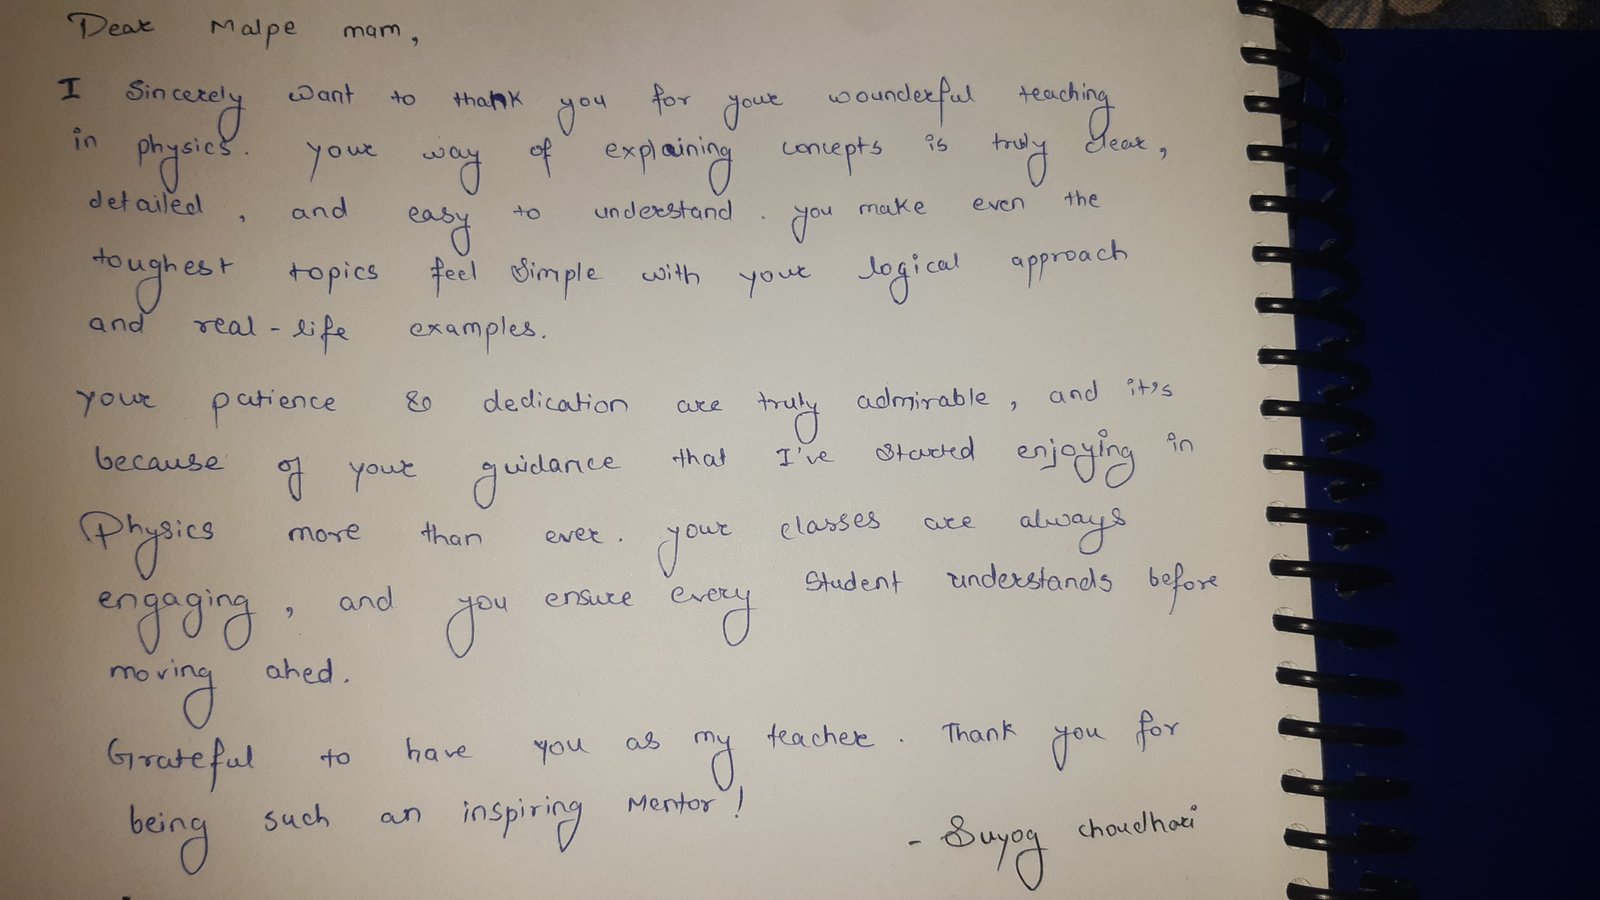 Dear Malpe mam,
I Sincerely want to thank you for your wounderful teaching
in physics. your way of explaining concepts is truly clear,
detailed, and easy to understand. you make even the
toughest topics feel simple with your logical approach
and real-life examples.
your patience & dedication are truly admirable, and it's
because of your guidance that I've started enjoying in
Physics more than ever. your classes are always
engaging, and you ensure every student understands before
moving ahed.
Grateful to have you as my teacher. Thank you for
being such an inspiring Mentor!
- Suyog choudhari